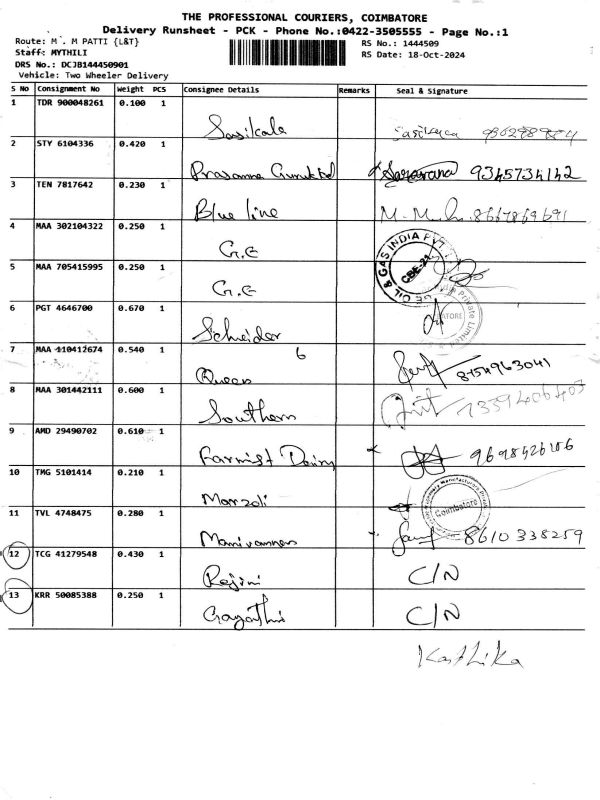 THE PROFESSIONAL COURIERS, COIMBATORE
Delivery Runsheet - PCK - Phone No.:0422-3505555 - Page No.:1
Route: M . M PATTI {L&T} RS No.: 1444509
Staff: MYTHILI RS Date: 18-Oct-2024
DRS No.: DCJB144450901
Vehicle: Two Wheeler Delivery
S No Consignment No Weight PCS Consignee Details Remarks Seal & Signature
1 TDR 900048261 0.100 1
Sasikala
2 STY 6104336 0.420 1
Prasanna 9345734142
3 TEN 7817642 0.230 1
Blue line 8667869691
4 MAA 302104322 0.250 1
G.E
GE OIL & GAS INDIA PVT
CBE-21
5 MAA 705415995 0.250 1
G.E
6 PGT 4646700 0.670 1
Schneider
Private Limited
7 MAA 110412674 0.540 1 6
Queen 8754963041
8 MAA 301442111 0.600 1
Southern
9 AMD 29490702 0.610 1
Farmist Dairy
10 TMG 5101414 0.210 1
Coimbatore
11 TVL 4748475 0.280 1
8610338259
12 TCG 41279548 0.430 1
Rejini C/N
13 KRR 50085388 0.250 1
Gayathri C/N
Karthika